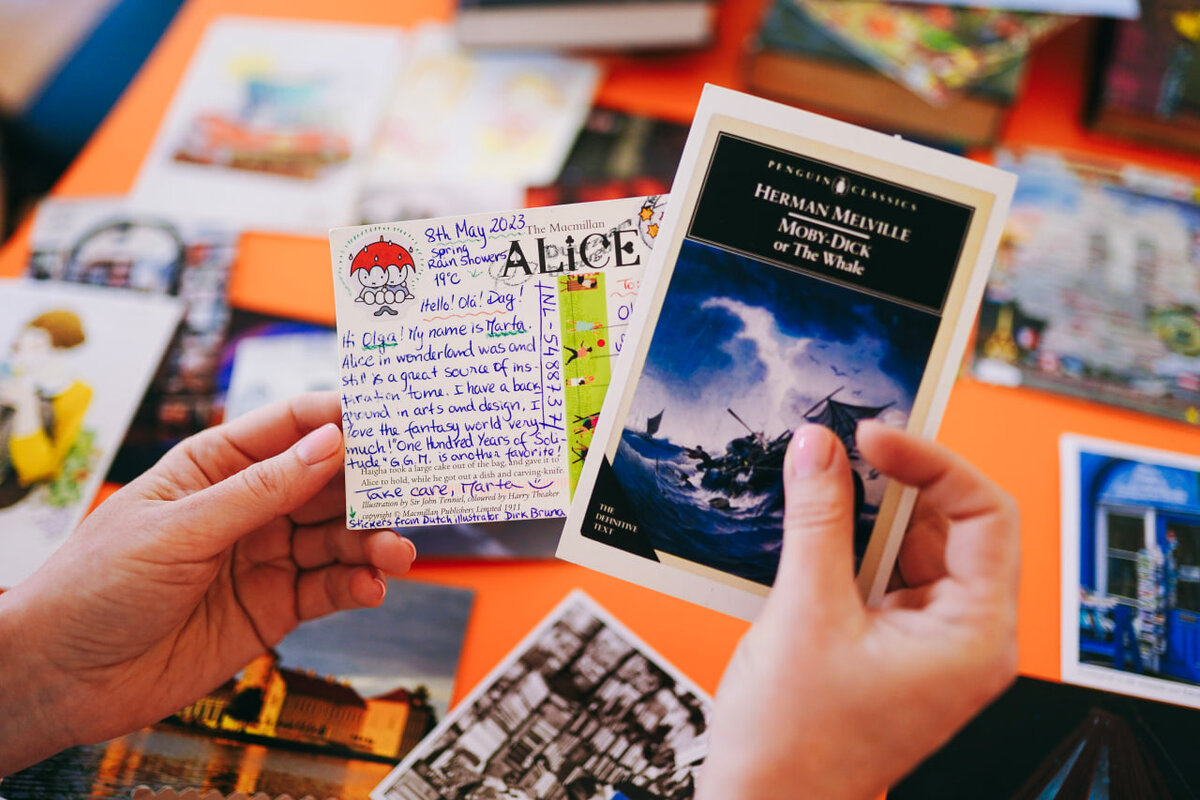 8th May 2023
spring
Rain showers
19°C
The Macmillan
ALiCE
Hello! Olá! Dag!
Hi Olga! My name is Marta.
Alice in wonderland was and
still is a great source of ins-
piration to me. I have a back
ground in arts and design, I
love the fantasy world very
much! "One Hundred Years of Soli-
tude" G.G.M. is another favorite!
Haigha took a large cake out of the bag, and gave it to
Alice to hold, while he got out a dish and carving-knife.
Take care, Marta
Illustration by Sir John Tenniel, coloured by Harry Theaker
copyright © Macmillan Publishers Limited 1911
Stickers from Dutch illustrator Dirk Bruna
NL-5488737
To:
PENGUIN CLASSICS
HERMAN MELVILLE
MOBY-DICK
or The Whale
THE
DEFINITIVE
TEXT